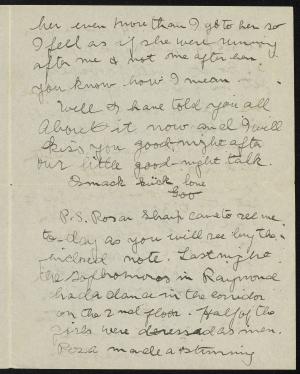 her even more than I go to her so
I feel as if she were running
after me & not me after her.
you know how I mean
Well I have told you all
about it now and I will
kiss you good-night after
our little good-night talk.
Smack love
Goo
P.S. Rosa Sharp came to see me
to-day as you will see by the
inclosed note. Last night
the sophomores in Raymond
had a dance in the corridor
on the 2nd floor. Half of the
girls were dressed as men.
Rosa made a stunning